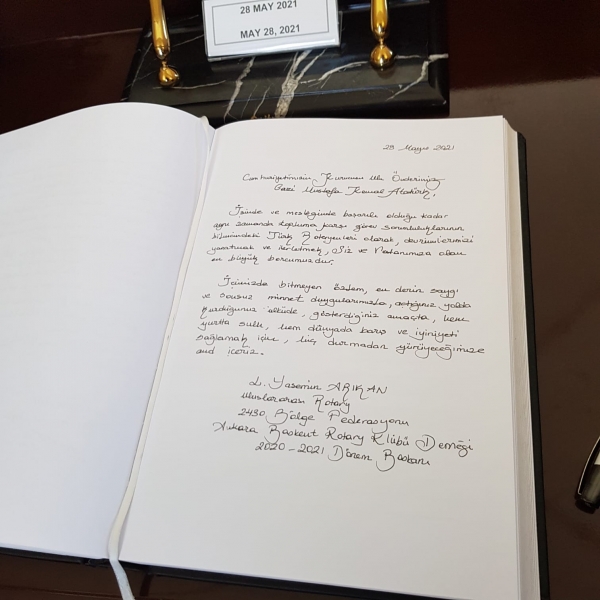 28 MAY 2021
MAY 28, 2021
28 Mayıs 2021
Cumhuriyetimizin Kurucusu Ulu Önderimiz
Gazi Mustafa Kemal Atatürk,
İşinde ve mesleğinde başarılı olduğu kadar
aynı zamanda topluma karşı görev sorumluluklarının
bilincindeki Türk Rotaryenleri olarak, devrimlerinizi
yaşatmak ve ilerletmek, Siz ve Vatanımıza olan
en büyük borcumuzdur.
İçimizde bitmeyen özlem, en derin saygı
ve sonsuz minnet duygularımızla, açtığınız yolda
kurduğunuz ülküde, gösterdiğiniz amaçta, hem
yurtta sulh, hem dünyada barış ve iyi niyeti
sağlamak için, hiç durmadan yürüyeceğimize
and içeriz.
L. Yasemin ARIKAN
Uluslararası Rotary
2430 Bölge Federasyonu
Ankara Başkent Rotary Klübü Derneği
2020-2021 Dönem Başkanı